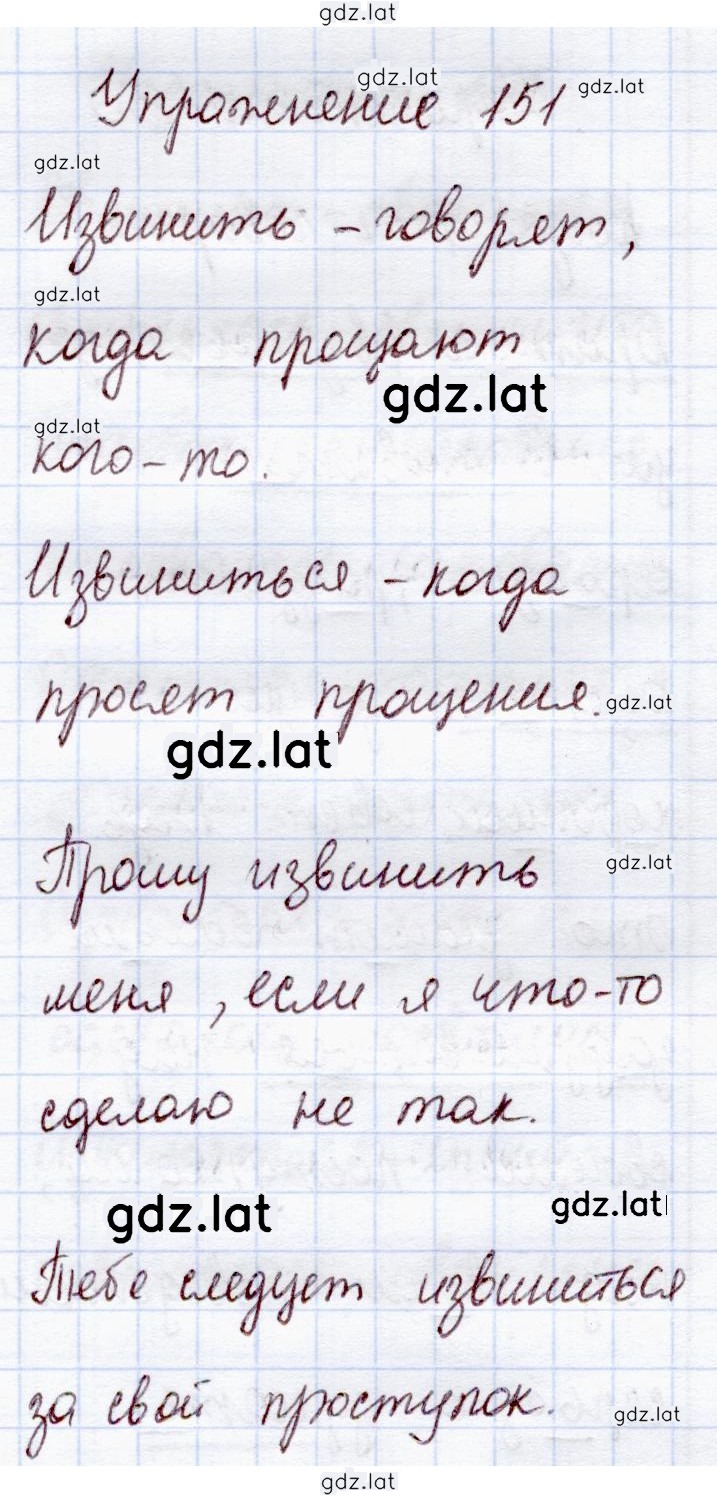 gdz.lat
gdz.lat
Упражнение 151 gdz.lat
gdz.lat
Извинить - говорят,
gdz.lat
когда прощают
gdz.lat
gdz.lat
кого-то.
Извиниться - когда
просят прощения. gdz.lat
gdz.lat
Прошу извинить gdz.lat
меня, если я что-то
сделаю не так.
gdz.lat gdz.lat
Тебе следует извиниться
за свой проступок. gdz.lat
gdz.lat